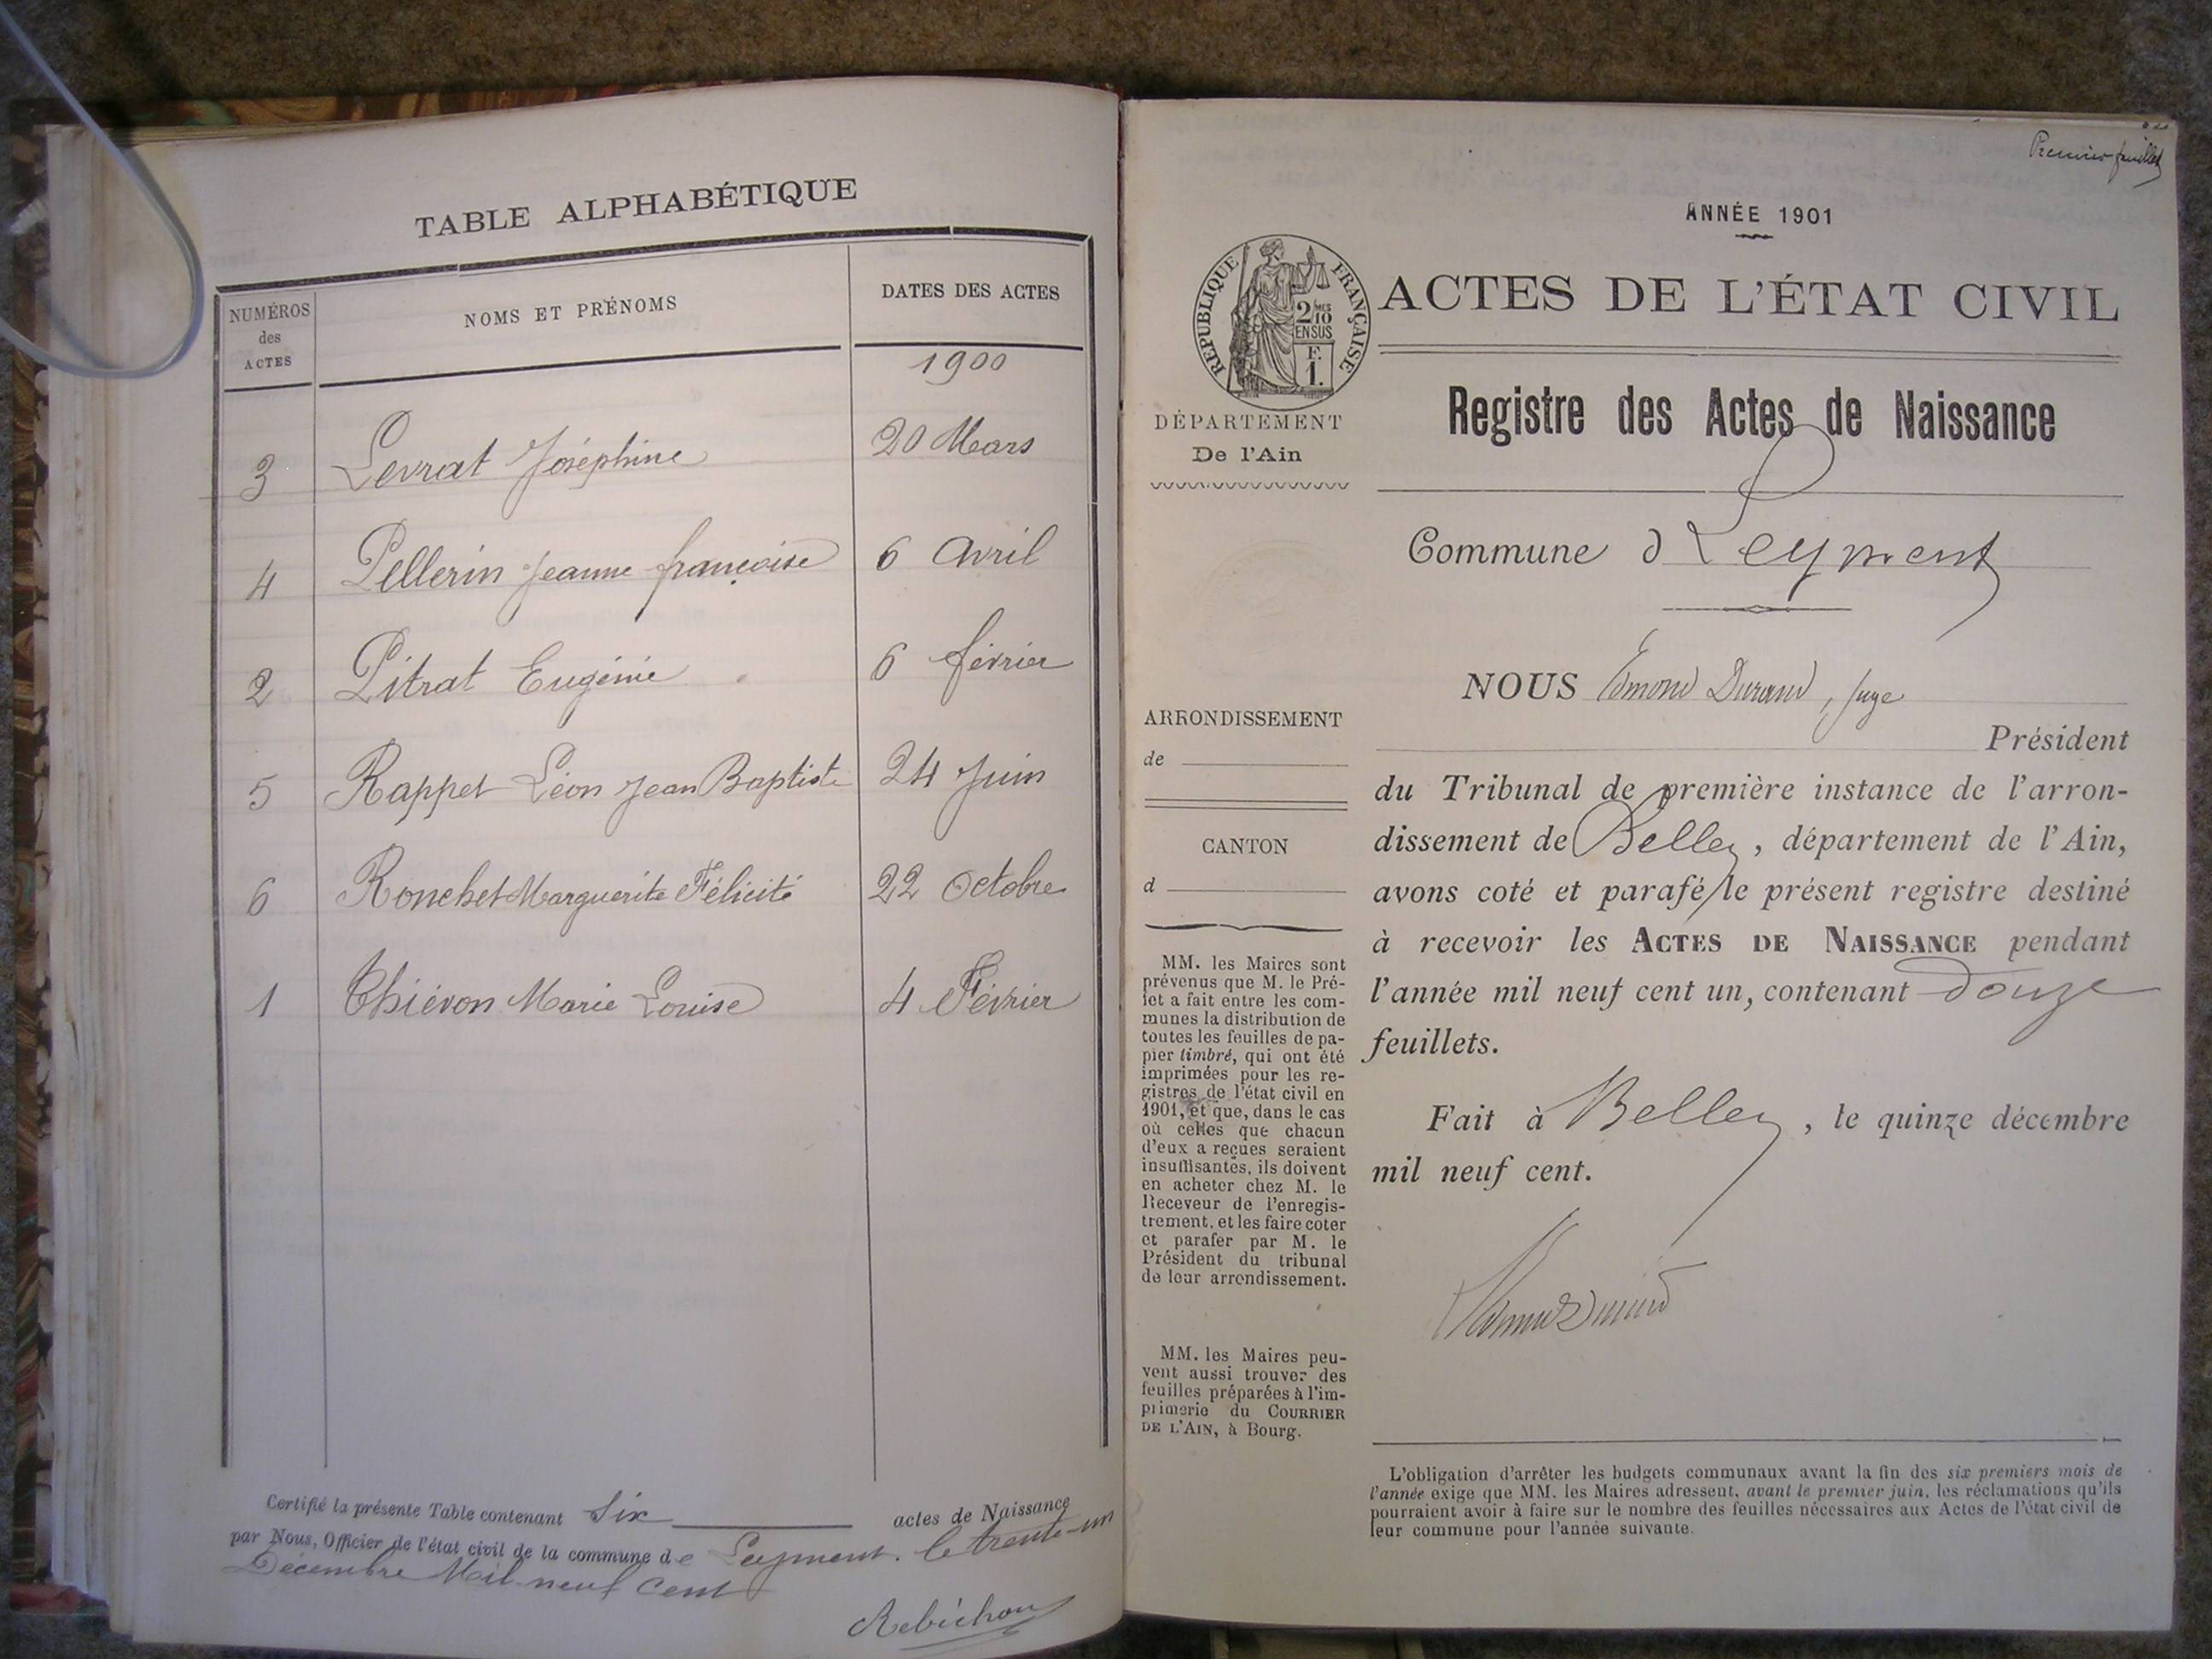 TABLE ALPHABÉTIQUE
NUMÉROS
des
ACTES
NOMS ET PRÉNOMS
DATES DES ACTES
1900
3 Levrat Joséphine 20 Mars
4 Pellerin Jeanne françoise 6 Avril
2 Pitrat Eugénie 6 février
5 Rappet Léon Jean Baptiste 24 Juin
6 Ronchet Marguerite Félicité 22 Octobre
1 Thiévon Marie Louise 4 Février
Certifié la présente Table contenant Six actes de Naissance
par Nous, Officier de l'état civil de la commune de Leyment. le trente-un
Décembre Mil neuf Cent
Rebichon
Premier feuillet
ANNÉE 1901
RÉPUBLIQUE FRANÇAISE
2 MES
10
EN SUS
F.
1.
ACTES DE L'ÉTAT CIVIL
DÉPARTEMENT
De l'Ain
Registre des Actes de Naissance
Commune d Leyment
NOUS Edmond Durand, Juge
Président
du Tribunal de première instance de l'arron-
dissement de Belley, département de l'Ain,
avons coté et parafé le présent registre destiné
à recevoir les ACTES DE NAISSANCE pendant
l'année mil neuf cent un, contenant douze
feuillets.
Fait à Belley, le quinze décembre
mil neuf cent.
ARRONDISSEMENT
de
CANTON
d
MM. les Maires sont
prévenus que M. le Pré-
fet a fait entre les com-
munes la distribution de
toutes les feuilles de pa-
pier timbré, qui ont été
imprimées pour les re-
gistres de l'état civil en
1901, et que, dans le cas
où celles que chacun
d'eux a reçues seraient
insuffisantes, ils doivent
en acheter chez M. le
Receveur de l'enregis-
trement, et les faire coter
et parafer par M. le
Président du tribunal
de leur arrondissement.
MM. les Maires peu-
vent aussi trouver des
feuilles préparées à l'im-
primerie du COURRIER
DE L'AIN, à Bourg.
L'obligation d'arrêter les budgets communaux avant la fin des six premiers mois de
l'année exige que MM. les Maires adressent, avant le premier juin, les réclamations qu'ils
pourraient avoir à faire sur le nombre des feuilles nécessaires aux Actes de l'état civil de
leur commune pour l'année suivante.